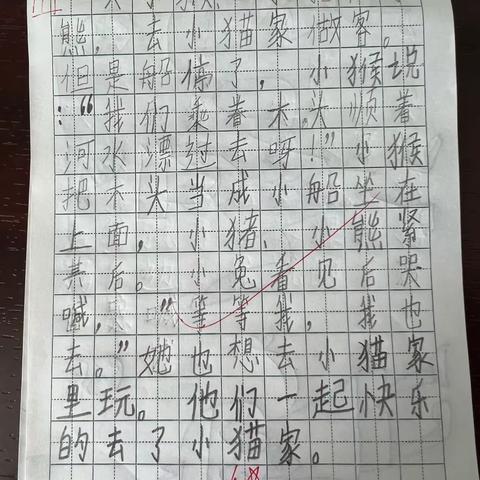 熊，去小猫家做客。
但是船停了，小猴说
：“我们乘着木头顺着
河水漂过去呀！”小猴
把木头当成小船坐在
上面，小猪、小熊紧
其后。小兔看见后哭
喊，“等等我，我也
去。”她也想去小猫家
里玩。他们一起快乐
的去了小猫家。